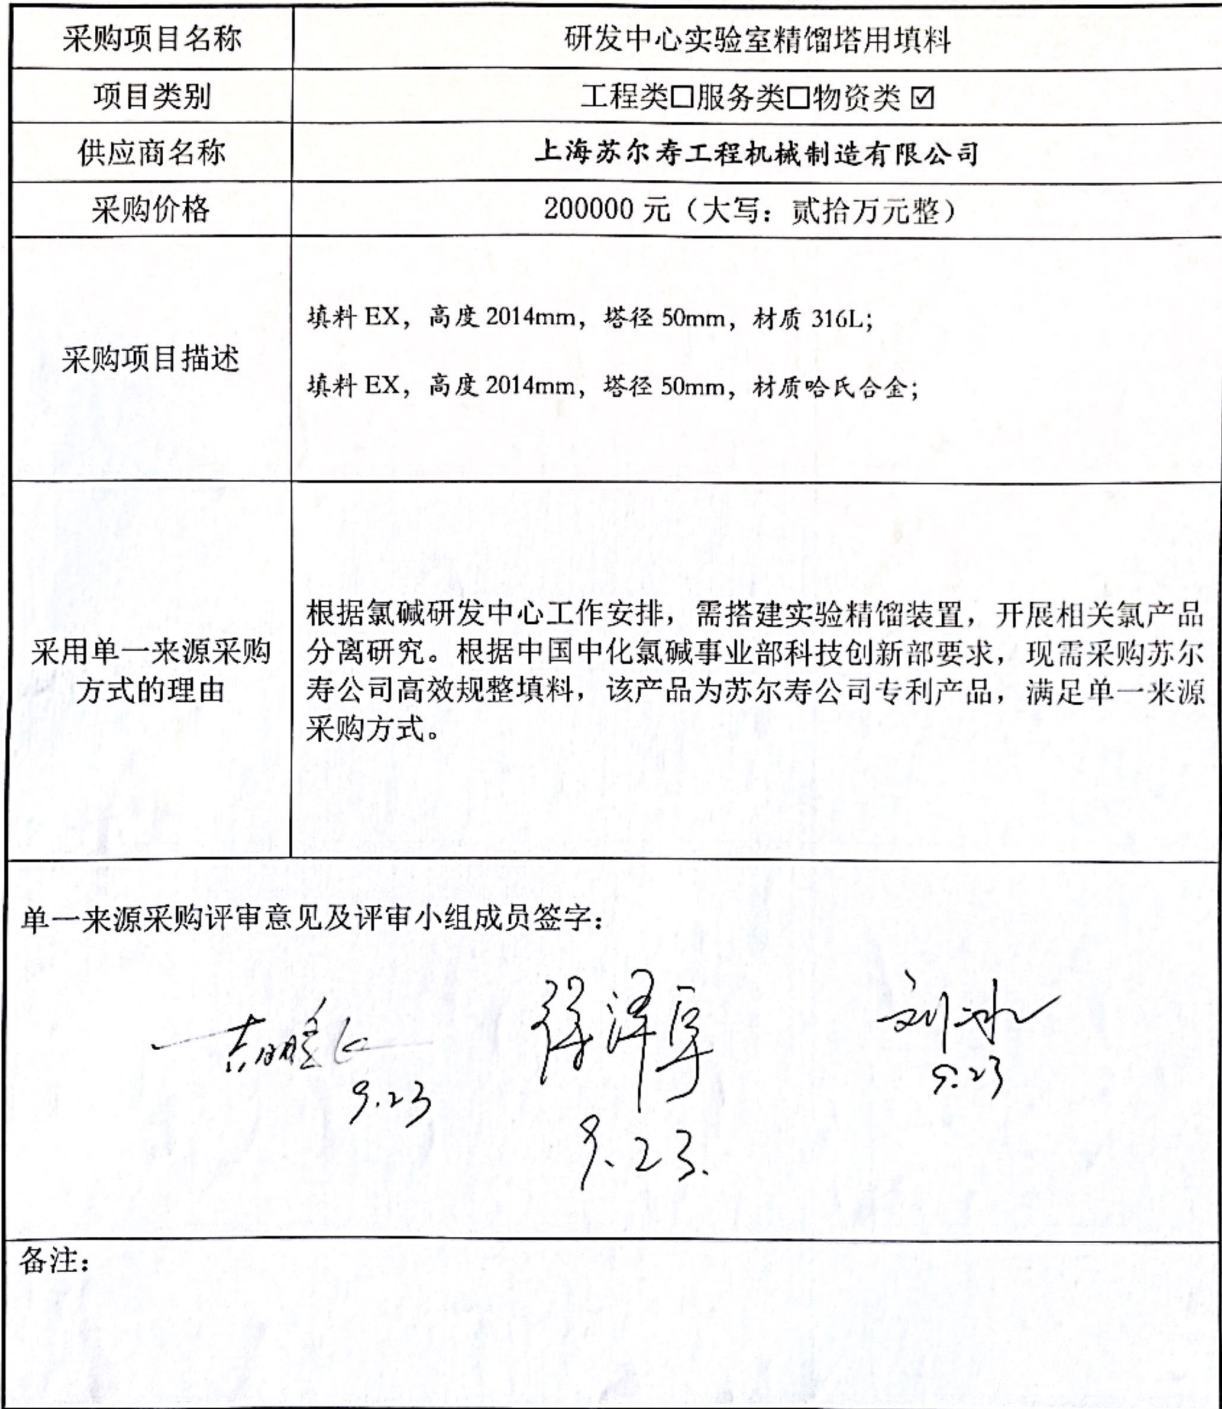 采购项目名称 研发中心实验室精馏塔用填料
项目类别 工程类□服务类□物资类☑
供应商名称 上海苏尔寿工程机械制造有限公司
采购价格 200000 元（大写：贰拾万元整）
采购项目描述
填料 EX，高度 2014mm，塔径 50mm，材质 316L；
填料 EX，高度 2014mm，塔径 50mm，材质哈氏合金；
采用单一来源采购
方式的理由
根据氯碱研发中心工作安排，需搭建实验精馏装置，开展相关氯产品
分离研究。根据中国中化氯碱事业部科技创新部要求，现需采购苏尔
寿公司高效规整填料，该产品为苏尔寿公司专利产品，满足单一来源
采购方式。
单一来源采购评审意见及评审小组成员签字：
刘冰
9.23
9.23
9.23.
备注：